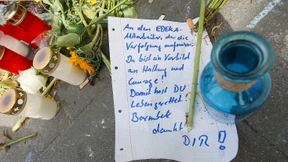 An den EDEKA-
Mitarbeiter, der die
Verfolgung aufnahm:
Du bist ein Vorbild
an Haltung und
Courage!!
Damit hast Du
Leben gerettet!
Barmbek
dankt
DIR!